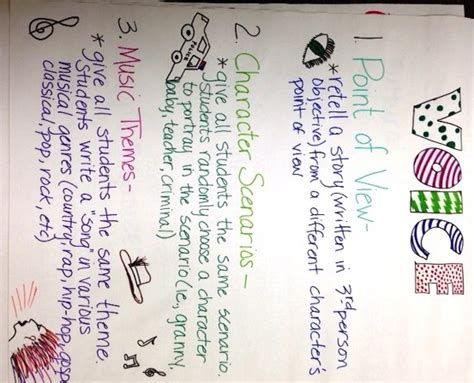 VOICE
1. Point of View-
* retell a story (written in 3rd person
objective) from a different character's
point of view
2. Character Scenarios -
* give all students the same scenario.
Students randomly choose a character
to portray in the scenario (i.e., granny,
baby, teacher, criminal)
POLICE
3. Music Themes-
* give all students the same theme.
Students write a "song" in various
musical genres (country, rap, hip-hop, gospel
classical, pop, rock, etc)